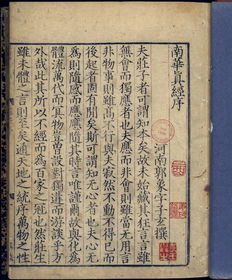 南華真經序
河南郭象字子玄撰
夫莊子者可謂知本矣故未始藏其狂言言雖
無會而獨應者也夫應而非會則雖當无用言
非物事則雖高不行與夫寂然不動不得已而
後起者固有閒矣斯可謂知无心者也夫心无
為則隨感而應應隨其時言唯謹爾故與化為
體流萬代而冥物豈曾設對獨遘而游談乎方
外哉此其所以不經而為百家之冠也然莊生
雖未體之言則至矣通天地之統序萬物之性